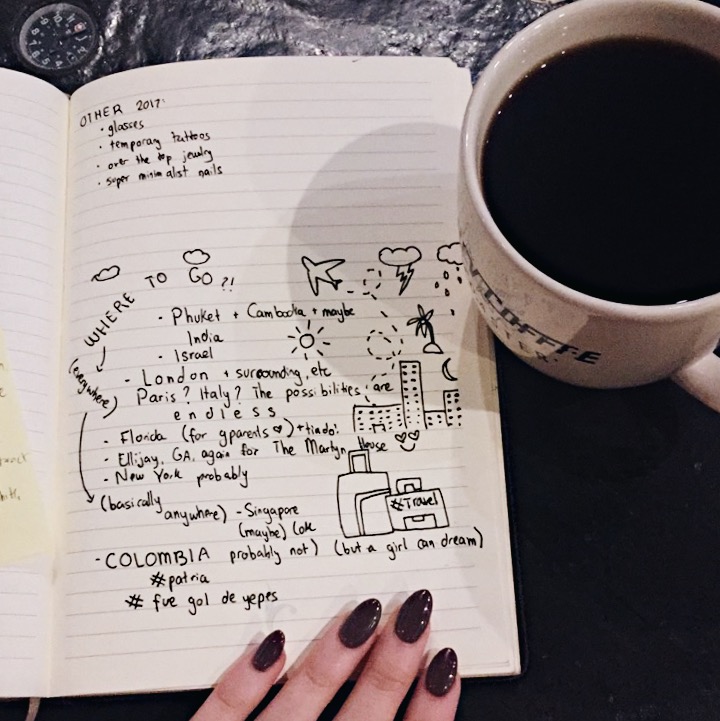 OTHER 2017:
• glasses
• temporary tattoos
• over the top jewlry
• super minimalist nails
WHERE TO GO ?!
(everywhere)
- Phuket + Cambodia + maybe
India
- Israel
- London + surrounding, etc
Paris? Italy? The possibilities are
endless
- Florida (for gparents ♡) + tiado!
- Ellijay, GA, again for The Martyn House
- New York probably
(basically
anywhere)
- Singapore
(maybe) (ok
probably not)
#Travel
- COLOMBIA (but a girl can dream)
#patria
# fue gol de yepes
COFFEE